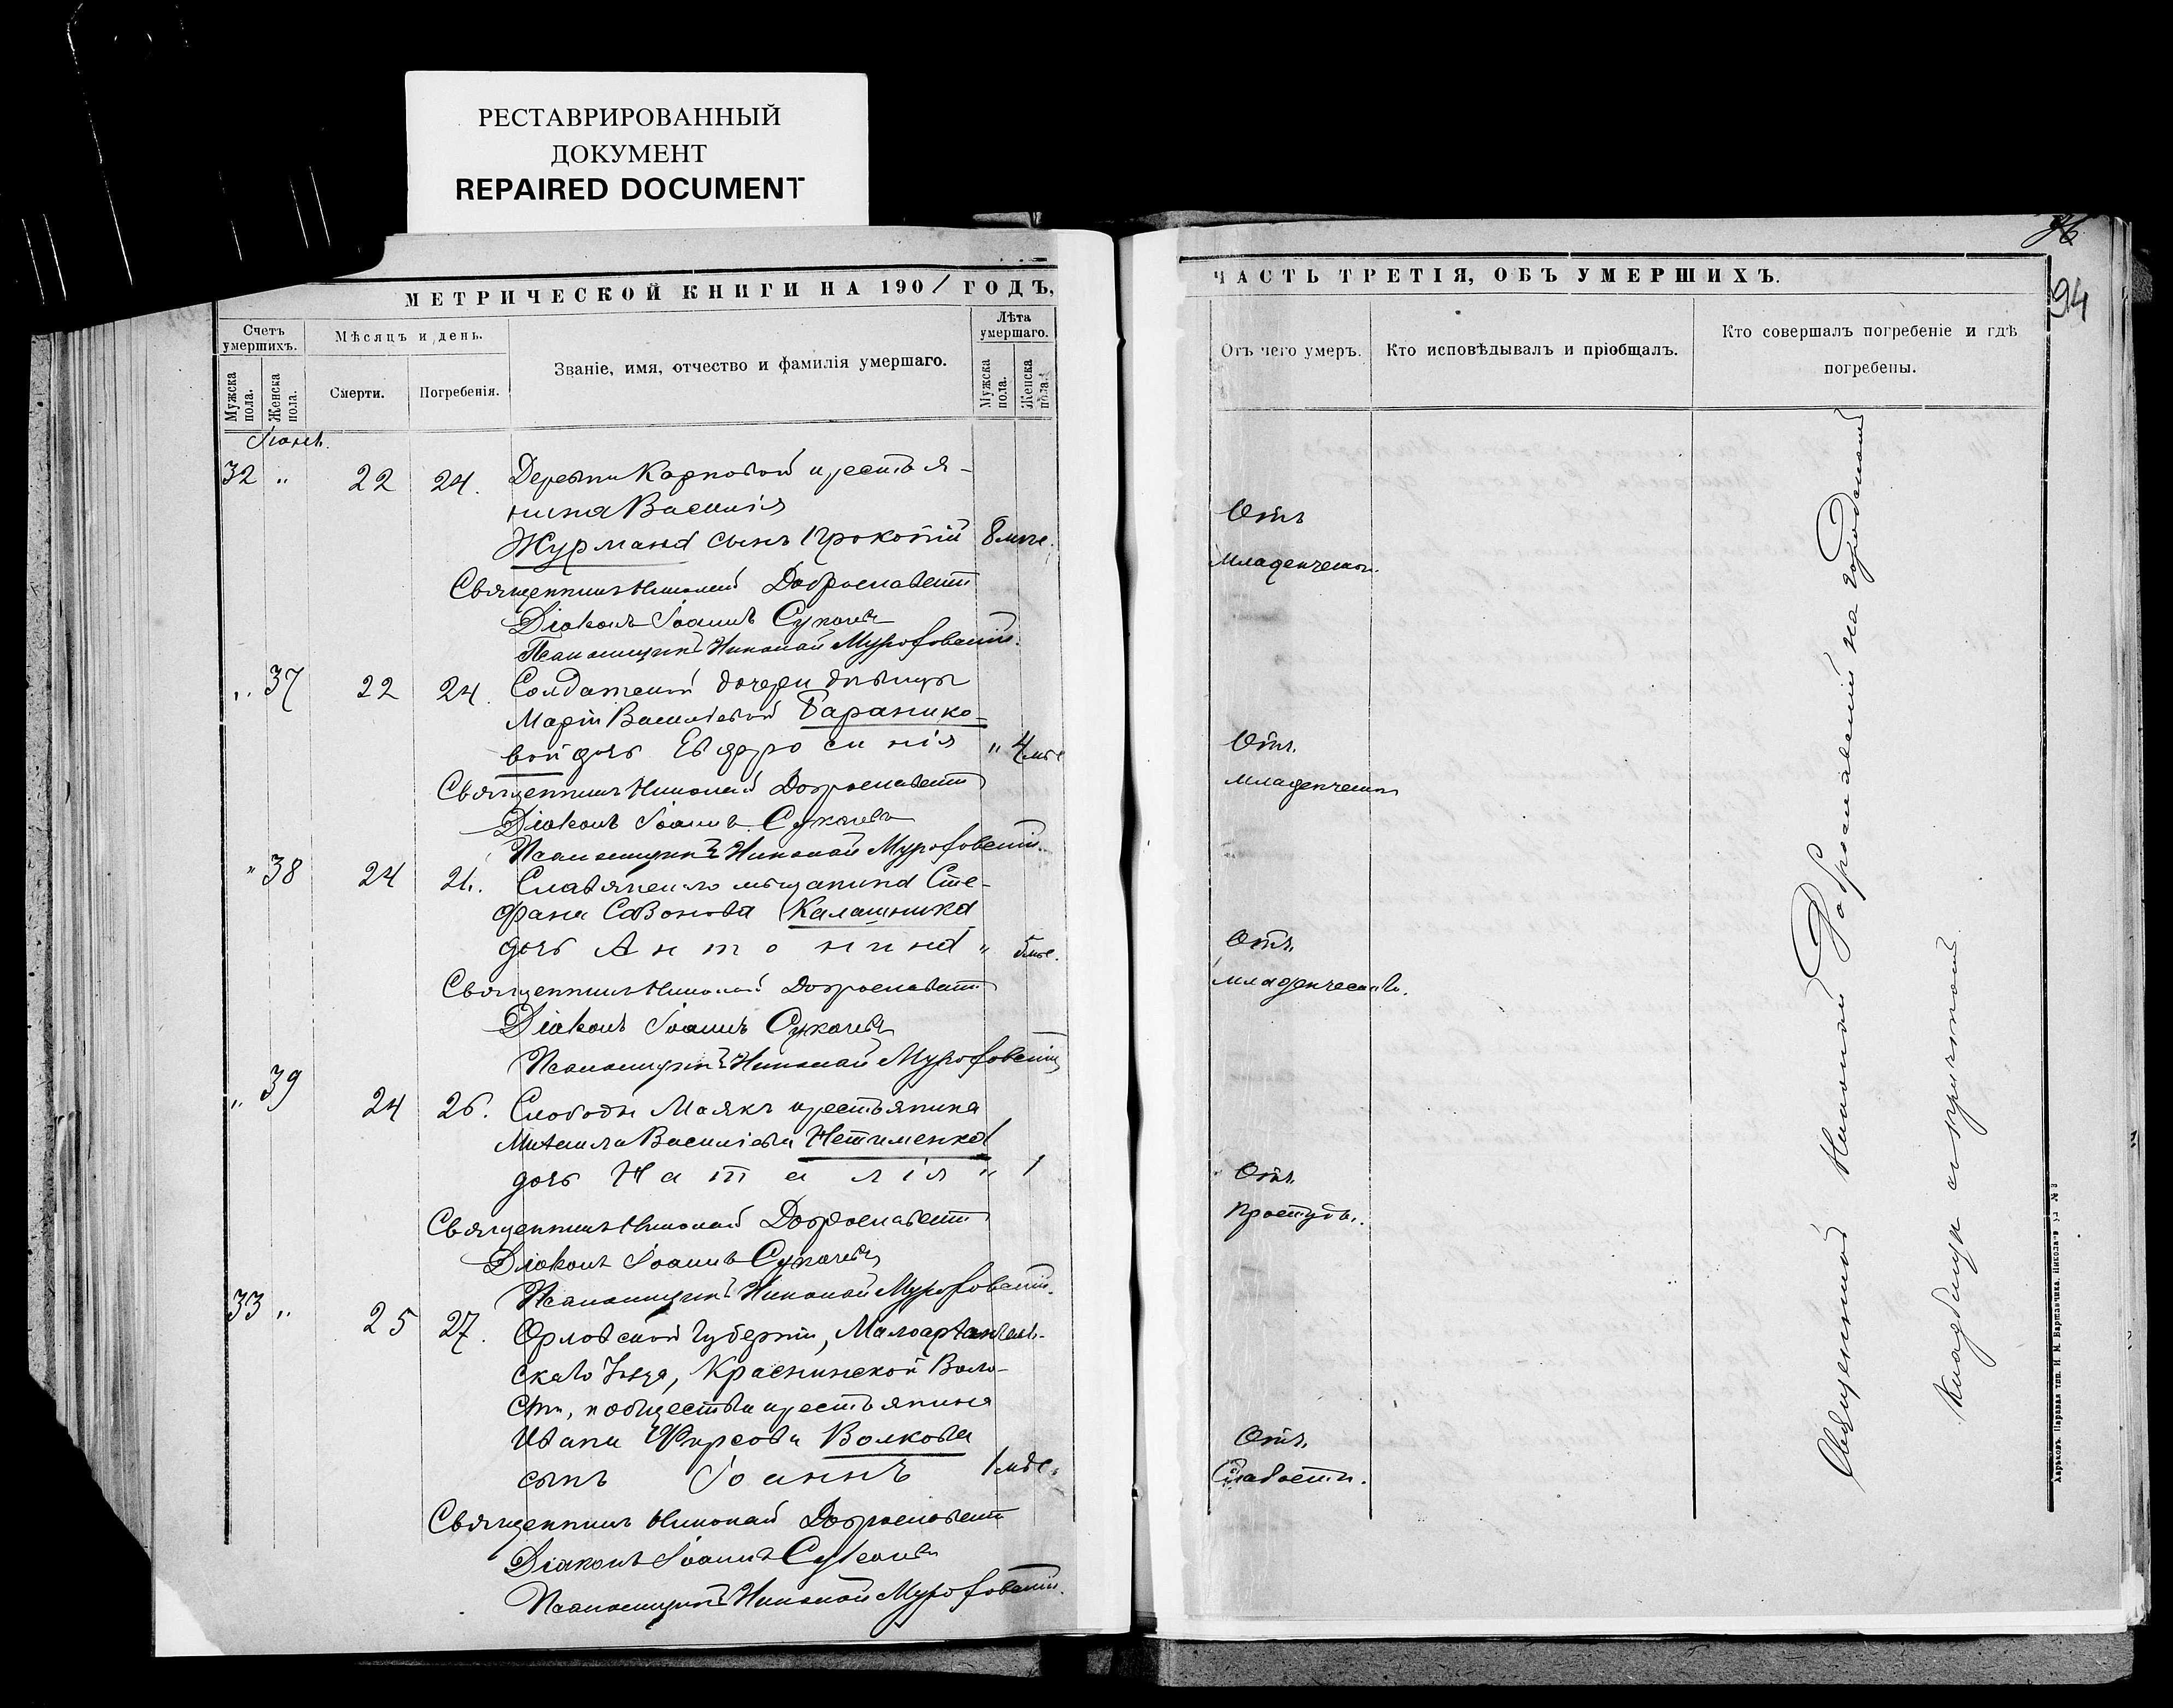 РЕСТАВРИРОВАННЫЙ
ДОКУМЕНТ
REPAIRED DOCUMENT
МЕТРИЧЕСКОЙ КНИГИ НА 1901 ГОДЪ,
Счетъ умершихъ.
Мѣсяцъ и день.
Званіе, имя, отчество и фамилія умершаго.
Лѣта умершаго.
Мужска пола.
Женска пола.
Смерти.
Погребенія.
Мужска пола.
Женска пола.
Іюнь.
32 " 22 24. Деревни Карповой крестья-
нина Василія
Журмана сынъ Прокопій 8 мѣс.
Священникъ Николай Доброславскій
Діаконъ Іоаннъ Сукачевъ
Псаломщикъ Николай
" 37 22 24. Солдатской дочери дѣвицы
Маріи Васильевой Баранико-
вой дочь Евфросинія " 4 мѣс
Священникъ Николай Доброславскій
Діаконъ Іоаннъ Сукачевъ
Псаломщикъ Николай
" 38 24 Славянскаго мѣщанина Сте-
фана Савонова Калашника
дочь Антонина " мѣс.
Священникъ Николай Доброславскій
Діаконъ Іоаннъ Сукачевъ
Псаломщикъ Николай
" 39 24 26. Слободы Маякъ крестьянина
Михаила Василіева Нетименка
дочь Наталія " 1
Священникъ Николай Доброславскій
Діаконъ Іоаннъ Сукачевъ
Псаломщикъ Николай
33 " 25 27. Орловской губерніи, Малоархангель-
скаго уѣзда, Краснинской Воло-
сти, и общества крестьянина
Ивана Фирсова Волкова
сынъ Іоаннъ 1 мѣс.
Священникъ Николай Доброславскій
Діаконъ Іоаннъ Сукачевъ
Псаломщикъ Николай
94
ЧАСТЬ ТРЕТІЯ, ОБЪ УМЕРШИХЪ.
Отъ чего умеръ.
Кто исповѣдывалъ и пріобщалъ.
Кто совершалъ погребеніе и гдѣ
погребены.
Отъ
младенческой.
Отъ
младенческой
Отъ
младенческаго.
Отъ
простуды.
Отъ
слабости.
Священникъ Николай Доброславскій на городскомъ
кладбищѣ